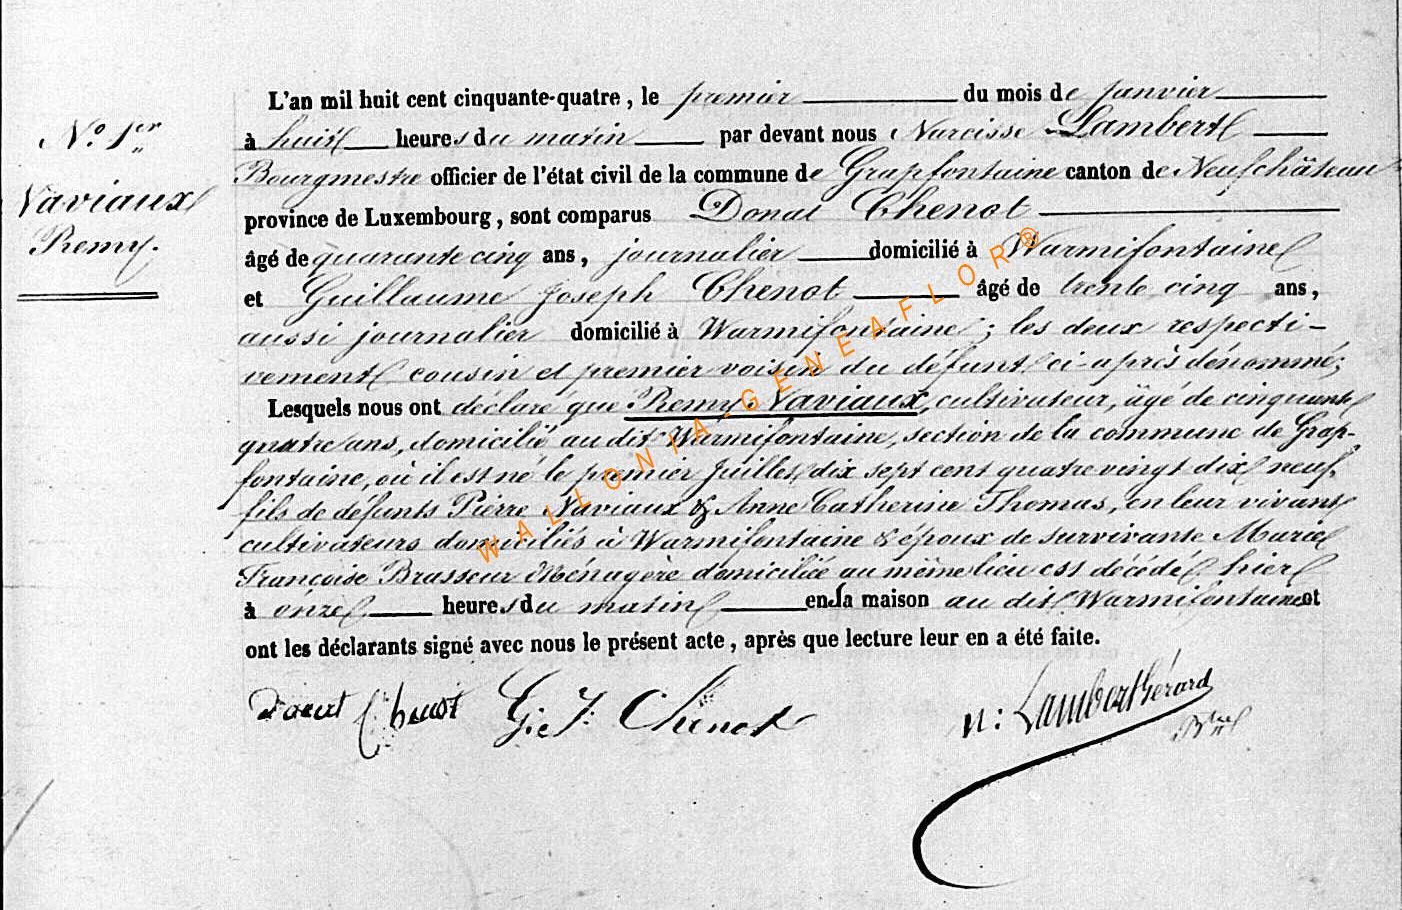 N.º 1er
Naviaux
Remy.
L'an mil huit cent cinquante-quatre, le premier du mois de janvier
à huit heures du matin par devant nous Narcisse Lambert
Bourgmestre officier de l'état civil de la commune de Grapfontaine canton de Neufchâteau
province de Luxembourg, sont comparus Donat Chenot
âgé de quarante cinq ans, journalier domicilié à Warmifontaine
et Guillaume Joseph Chenot âgé de trente cinq ans,
aussi journalier domicilié à Warmifontaine; les deux respecti-
vement cousin et premier voisin du défunt ci-après dénommé;
Lesquels nous ont déclaré que Remy Naviaux, cultivateur, âgé de cinquante
quatre ans, domicilié au dit Warmifontaine, section de la commune de Grap-
fontaine, où il est né le premier Juillet dix sept cent quatre vingt dix neuf,
fils de défunts Pierre Naviaux & Anne Catherine Thomas, en leur vivant
cultivateurs domiciliés à Warmifontaine & époux de survivante Marie
Françoise Brasseur Ménagère domiciliée au même lieu est décédé hier
à onze heures du matin en sa maison au dit Warmifontaine et
ont les déclarants signé avec nous le présent acte, après que lecture leur en a été faite.
Donat Chenot G. J. Chenot n: Lambert Gérard
WALLONIA-GENEAFLOR®